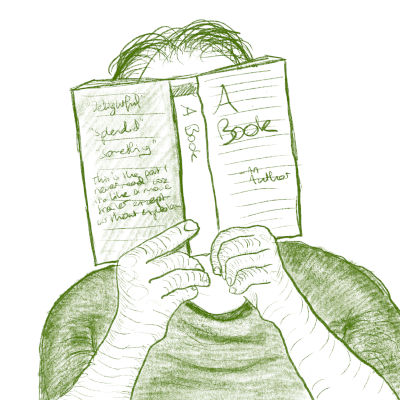 "Delightful"
"Splendid"
"Something"
This is the part I
never read cos
its like a movie
trailer except
without explosions
A Book
A
Book
An
Author